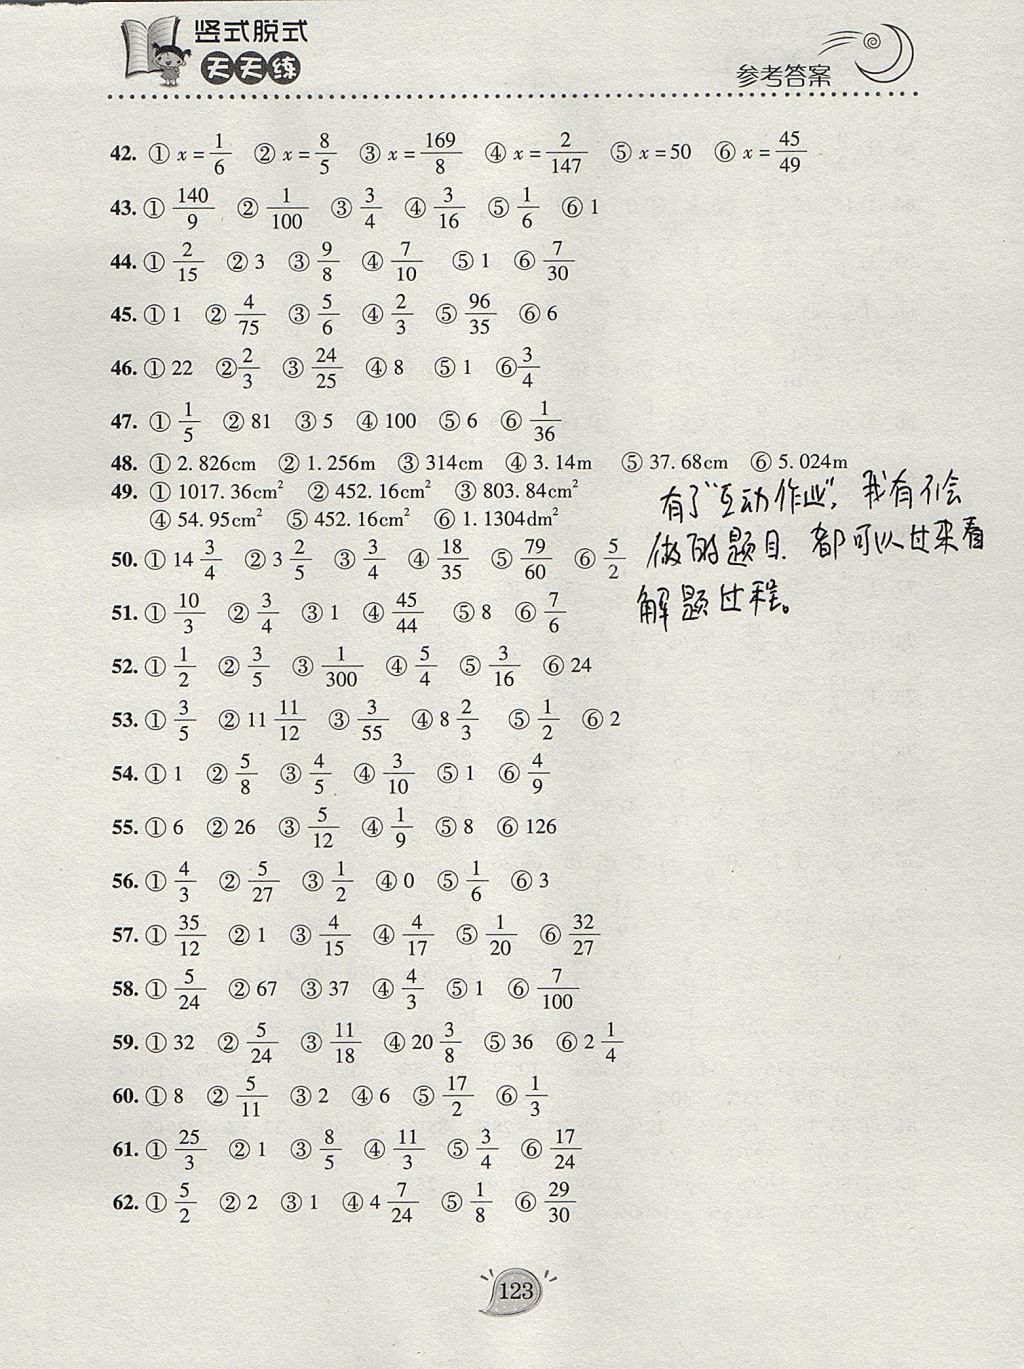 竖式脱式
天天练
参考答案
42. ① x=1/6 ② x=8/5 ③ x=169/8 ④ x=2/147 ⑤ x=50 ⑥ x=45/49
43. ① 140/9 ② 1/100 ③ 3/4 ④ 3/16 ⑤ 1/6 ⑥ 1
44. ① 2/15 ② 3 ③ 9/8 ④ 7/10 ⑤ 1 ⑥ 7/30
45. ① 1 ② 4/75 ③ 5/6 ④ 2/3 ⑤ 96/35 ⑥ 6
46. ① 22 ② 2/3 ③ 24/25 ④ 8 ⑤ 1 ⑥ 3/4
47. ① 1/5 ② 81 ③ 5 ④ 100 ⑤ 6 ⑥ 1/36
48. ① 2.826cm ② 1.256m ③ 314cm ④ 3.14m ⑤ 37.68cm ⑥ 5.024m
49. ① 1017.36cm² ② 452.16cm² ③ 803.84cm²
④ 54.95cm² ⑤ 452.16cm² ⑥ 1.1304dm²
有了“互动作业”，我有不会
做的题目，都可以过来看
解题过程。
50. ① 14 3/4 ② 3 2/5 ③ 3/4 ④ 18/35 ⑤ 79/60 ⑥ 5/2
51. ① 10/3 ② 3/4 ③ 1 ④ 45/44 ⑤ 8 ⑥ 7/6
52. ① 1/2 ② 3/5 ③ 1/300 ④ 5/4 ⑤ 3/16 ⑥ 24
53. ① 3/5 ② 11 11/12 ③ 3/55 ④ 8 2/3 ⑤ 1/2 ⑥ 2
54. ① 1 ② 5/8 ③ 4/5 ④ 3/10 ⑤ 1 ⑥ 4/9
55. ① 6 ② 26 ③ 5/12 ④ 1/9 ⑤ 8 ⑥ 126
56. ① 4/3 ② 5/27 ③ 1/2 ④ 0 ⑤ 1/6 ⑥ 3
57. ① 35/12 ② 1 ③ 4/15 ④ 4/17 ⑤ 1/20 ⑥ 32/27
58. ① 5/24 ② 67 ③ 37 ④ 4/3 ⑤ 1 ⑥ 7/100
59. ① 32 ② 5/24 ③ 11/18 ④ 20 3/8 ⑤ 36 ⑥ 2 1/4
60. ① 8 ② 5/11 ③ 2 ④ 6 ⑤ 17/2 ⑥ 1/3
61. ① 25/3 ② 1 ③ 8/5 ④ 11/3 ⑤ 3/4 ⑥ 17/24
62. ① 5/2 ② 2 ③ 1 ④ 4 7/24 ⑤ 1/8 ⑥ 29/30
123